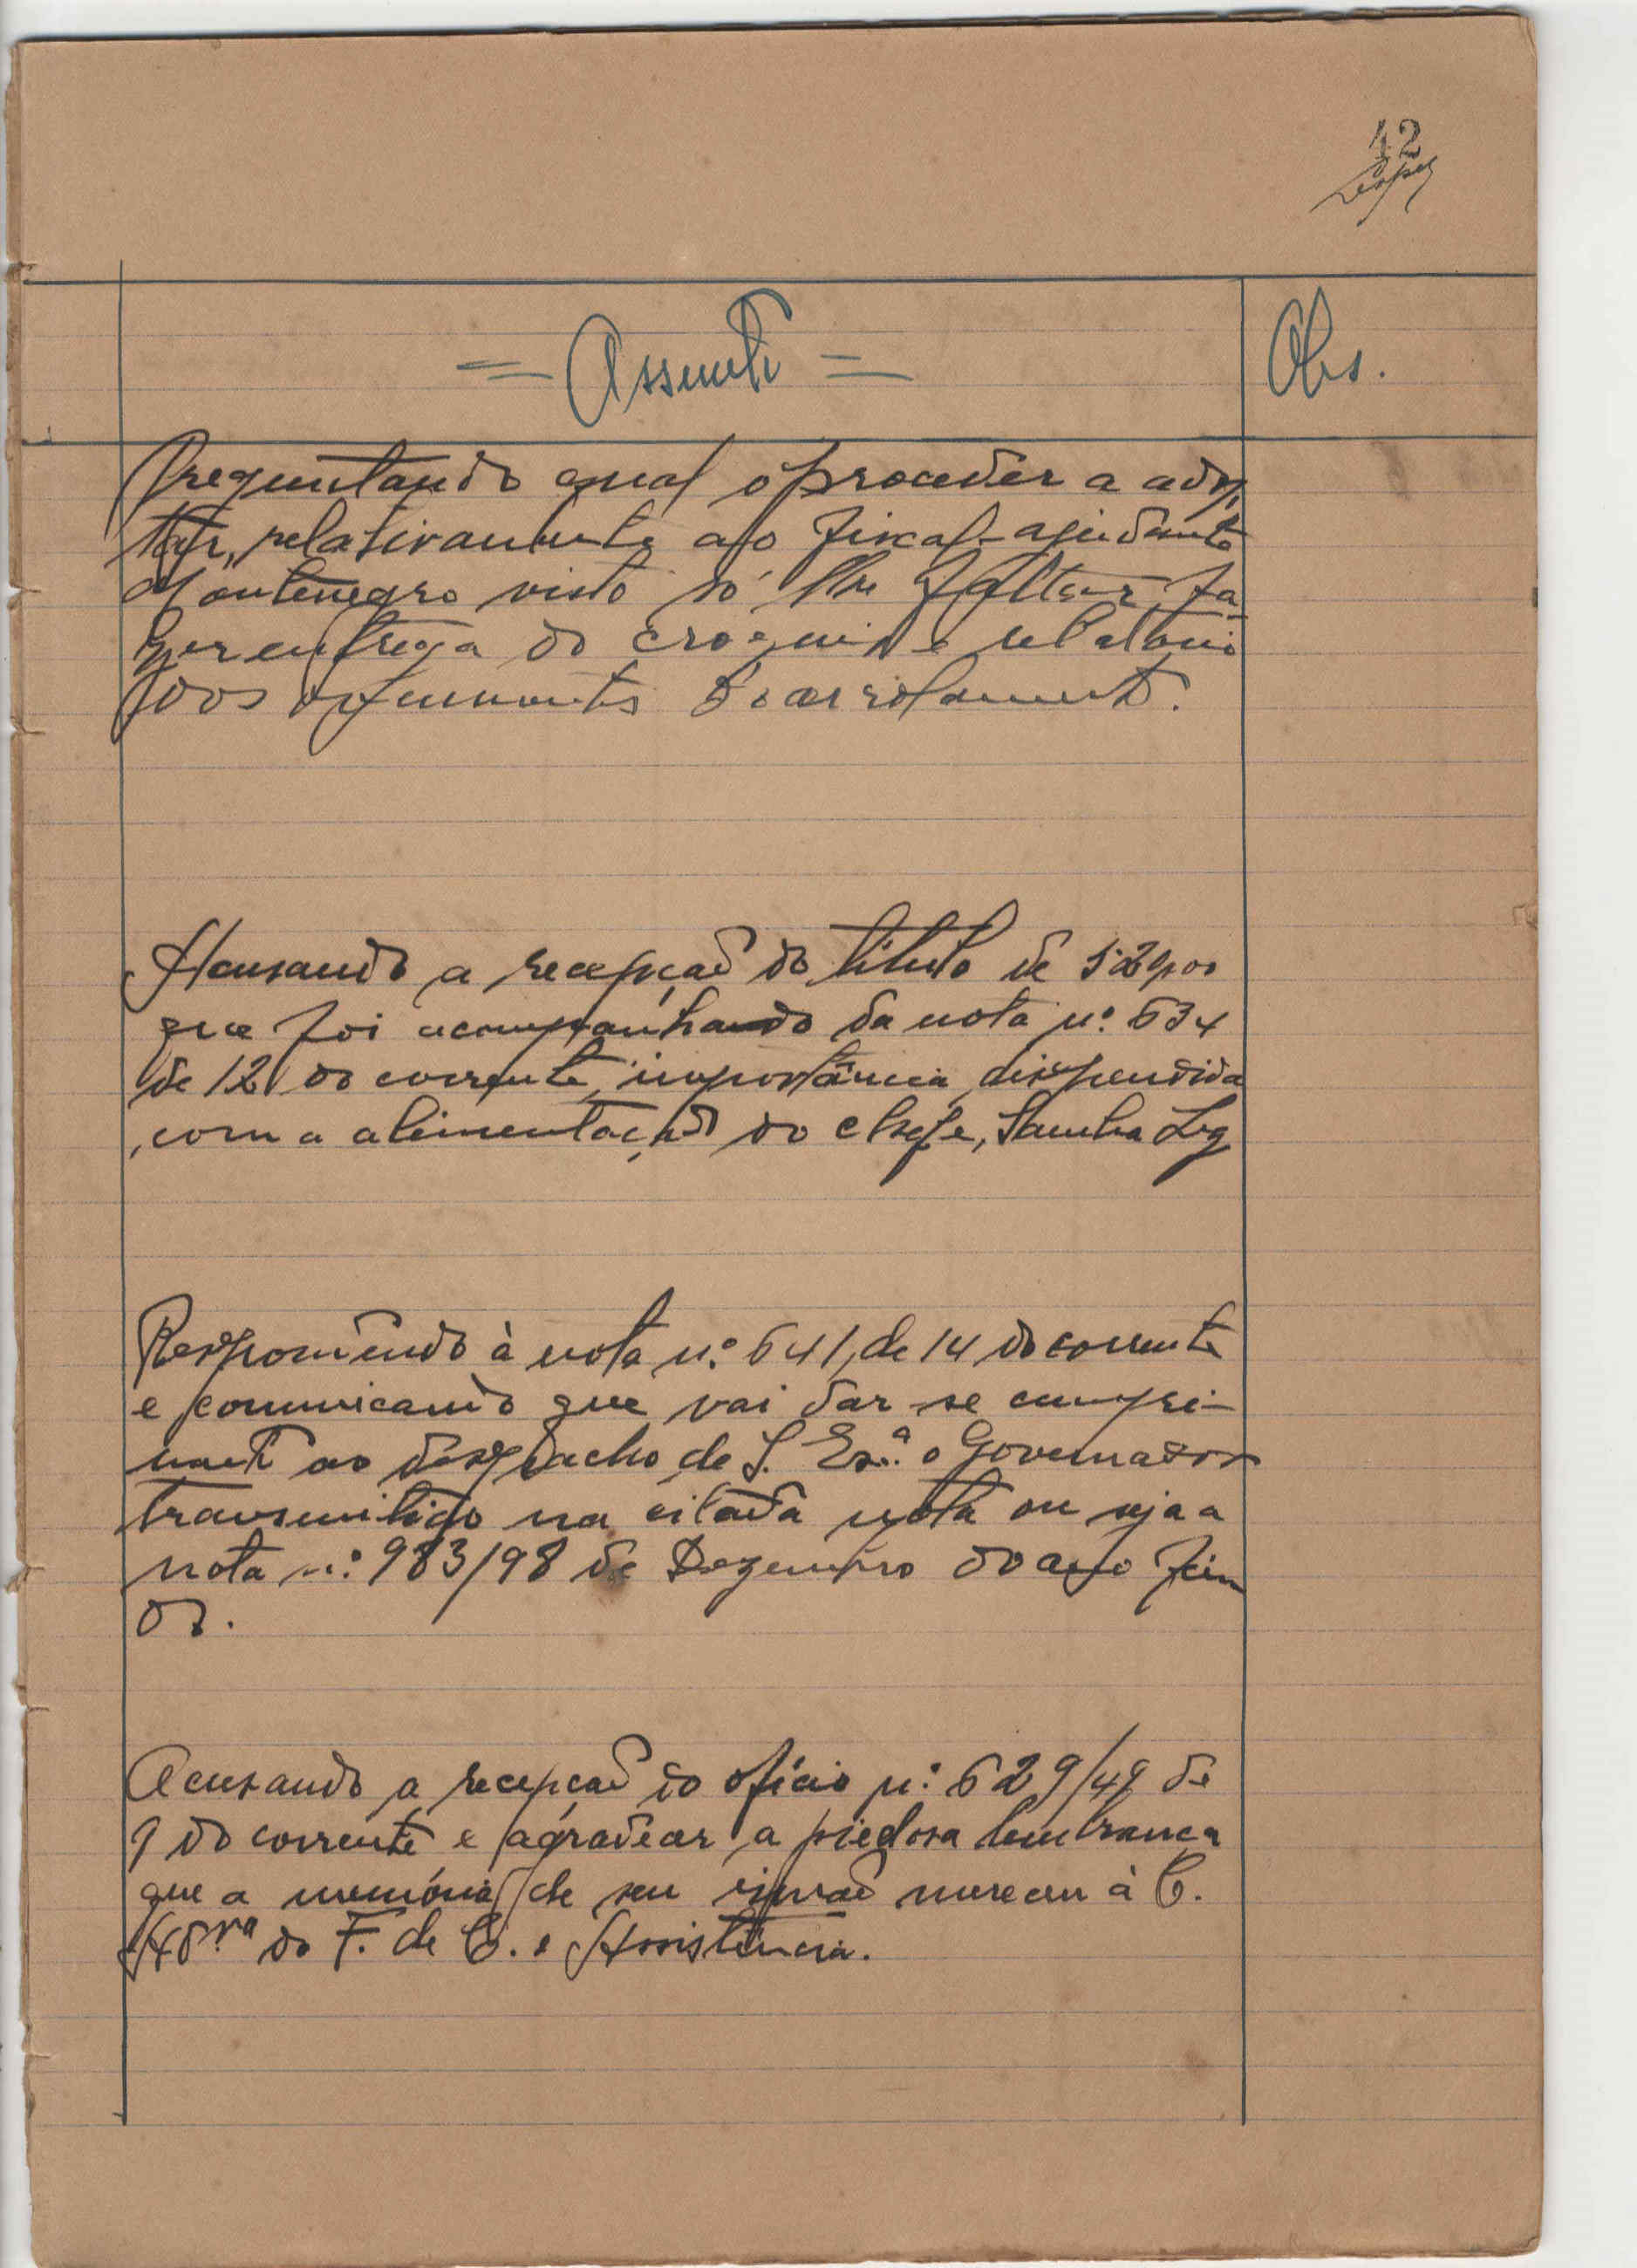 42
Lopes
= Assunto =
Obs.
Preguntando qual o proceder a adop
tar, relativamente ao fiscal-ajudante
Montenegro visto só lhe faltar fa
zer entrega do croquis e relatorio
dos do arrolamento.
Acusando a recepção do titulo de
que foi acompanhando da nota n.º 634
de 12 do corrente, importância dispendida
com a alimentação do chefe,
Respondendo à nota n.º 641, de 14 do corrente
e comunicando que vai dar se cumpri-
mento ao despacho de S. Ex.ª o Governador
transmitido na citada nota ou seja a
nota n.º 983/98 de Dezembro do ano fin
do.
Acusando a recepção do ofício n.º 629/49 de
9 do corrente e agradecer a piedosa lembrança
que a memória de seu irmão mereceu à C.
Ad.ra do F. de C. e Assistência.